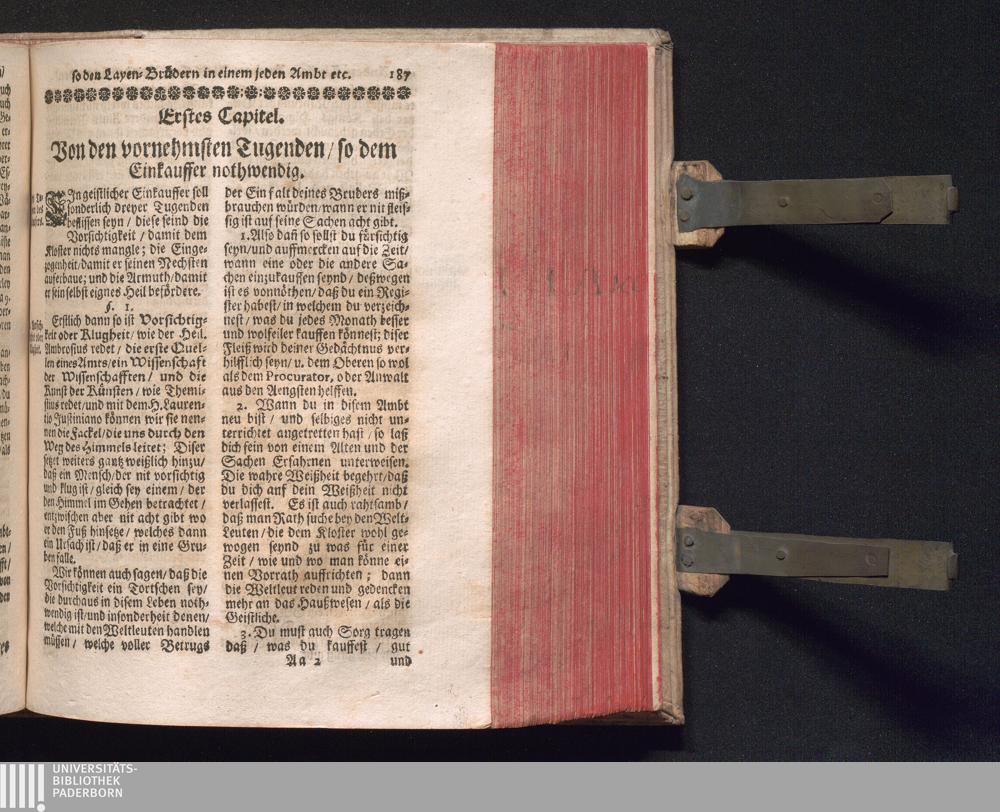 so den Layen-Brüdern in einem jeden Ambt etc. 187
Erstes Capitel.
Von den vornehmsten Tugenden / so dem
Einkauffer nothwendig.
EIn geistlicher Einkauffer soll
sonderlich dreyer Tugenden
beflissen seyn / diese seind die
Vorsichtigkeit / damit dem
Kloster nichts mangle; die Einge-
zogenheit / damit er seinen Nechsten
auferbaue; und die Armuth / damit
er sein selbst eignes Heil befördere.
§. 1.
Erstlich dann so ist Vorsichtig-
keit oder Klugheit / wie der Heil.
Ambrosius redet / die erste Quel-
len eines Amts / ein Wissenschaft
der Wissenschafften / und die
Kunst der Künsten / wie Themi-
stius redet / und mit dem H. Lauren-
tio Justiniano können wir sie nen-
nen die Fackel / die uns durch den
Weg des Himmels leitet; Diser
setzet weiters gantz weißlich hinzu /
daß ein Mensch / der nit vorsichtig
und klug ist / gleich sey einem / der
den Himmel im Gehen betrachtet /
entzwischen aber nit acht gibt wo
er den Fuß hinsetze / welches dann
ein Ursach ist / daß er in eine Gru-
ben falle.
Wir können auch sagen / daß die
Vorsichtigkeit ein Tortschen sey /
die durchaus in disem Leben noth-
wendig ist / und insonderheit denen /
welche mit den Weltleuten handlen
müssen / welche voller Betrugs
der Einfalt deines Bruders miß-
brauchen würden / wann er nit fleis-
sig ist auf seine Sachen acht gibt.
1. Also daß so sollst du fürsichtig
seyn / und auffmercken auf die Zeit /
wann eine oder die andere Sa-
chen einzukauffen seynd / deßwegen
ist es vonnöthen / daß du ein Regi-
ster habest / in welchem du verzeich-
nest / was du jedes Monath besser
und wolfeiler kauffen könnest; diser
Fleiß wird deiner Gedächtnus ver-
hilfflich seyn / u. dem Oberen so wol
als dem Procurator, oder Anwalt
aus den Aengsten helffen.
2. Wann du in disem Ambt
neu bist / und selbiges nicht un-
terrichtet angetretten hast / so laß
dich fein von einem Alten und der
Sachen Erfahrnen unterweisen.
Die wahre Weißheit begehrt / daß
du dich auf dein Weißheit nicht
verlassest. Es ist auch rahtsamb /
daß man Rath suche bey den Welt-
Leuten / die dem Kloster wohl ge-
wogen seynd zu was für einer
Zeit / wie und wo man könne ei-
nen Vorrath auffrichten; dann
die Weltleut reden und gedencken
mehr an das Haußwesen / als die
Geistliche.
3. Du must auch Sorg tragen
daß / was du kauffest / gut
Aa 2 und
UNIVERSITÄTS-
BIBLIOTHEK
PADERBORN